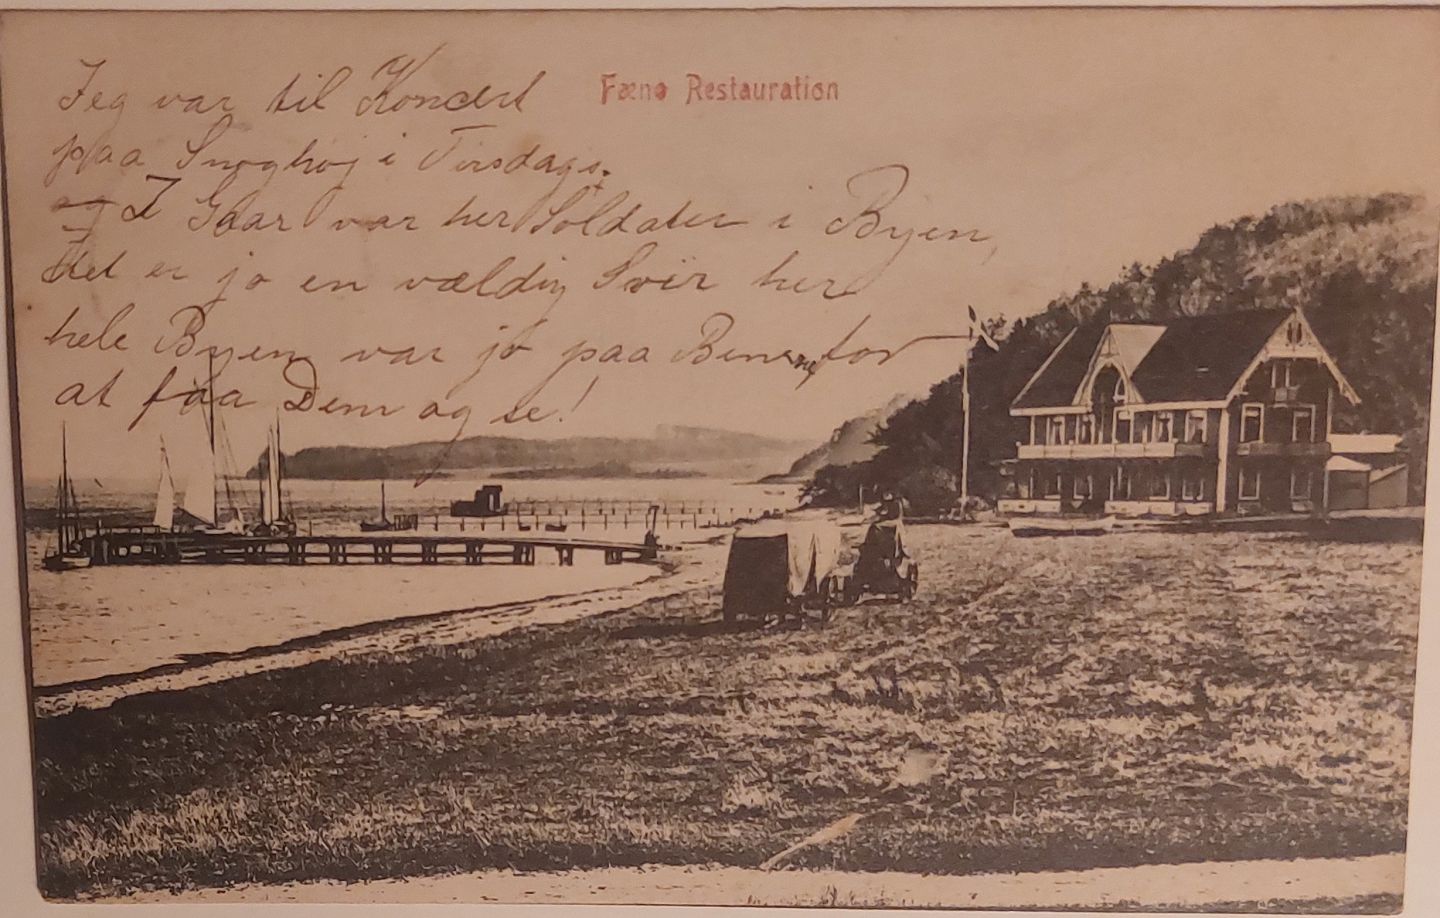 Fænø Restauration
Jeg var til Koncert
paa Snoghøj i Tirsdags.
og I Gaar var her Soldater i Byen,
det er jo en vældig Svir her
hele Byen var jo paa Benene for
at faa Dem og se!